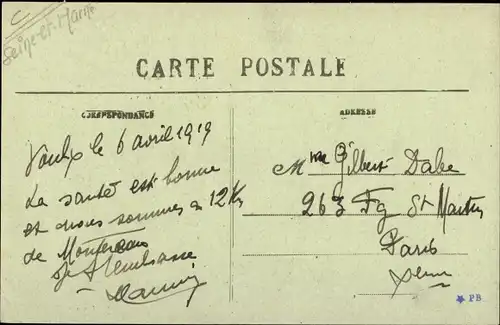 Seine-et-Marne
CARTE POSTALE
CORRESPONDANCE
ADRESSE
Voulx le 6 avril 1919
La santé est bonne
et nous sommes à 12 Km
de Montereau
Je t'embrasse
Mme Gilbert Dabe
263 Fg St Martin
Paris
PB